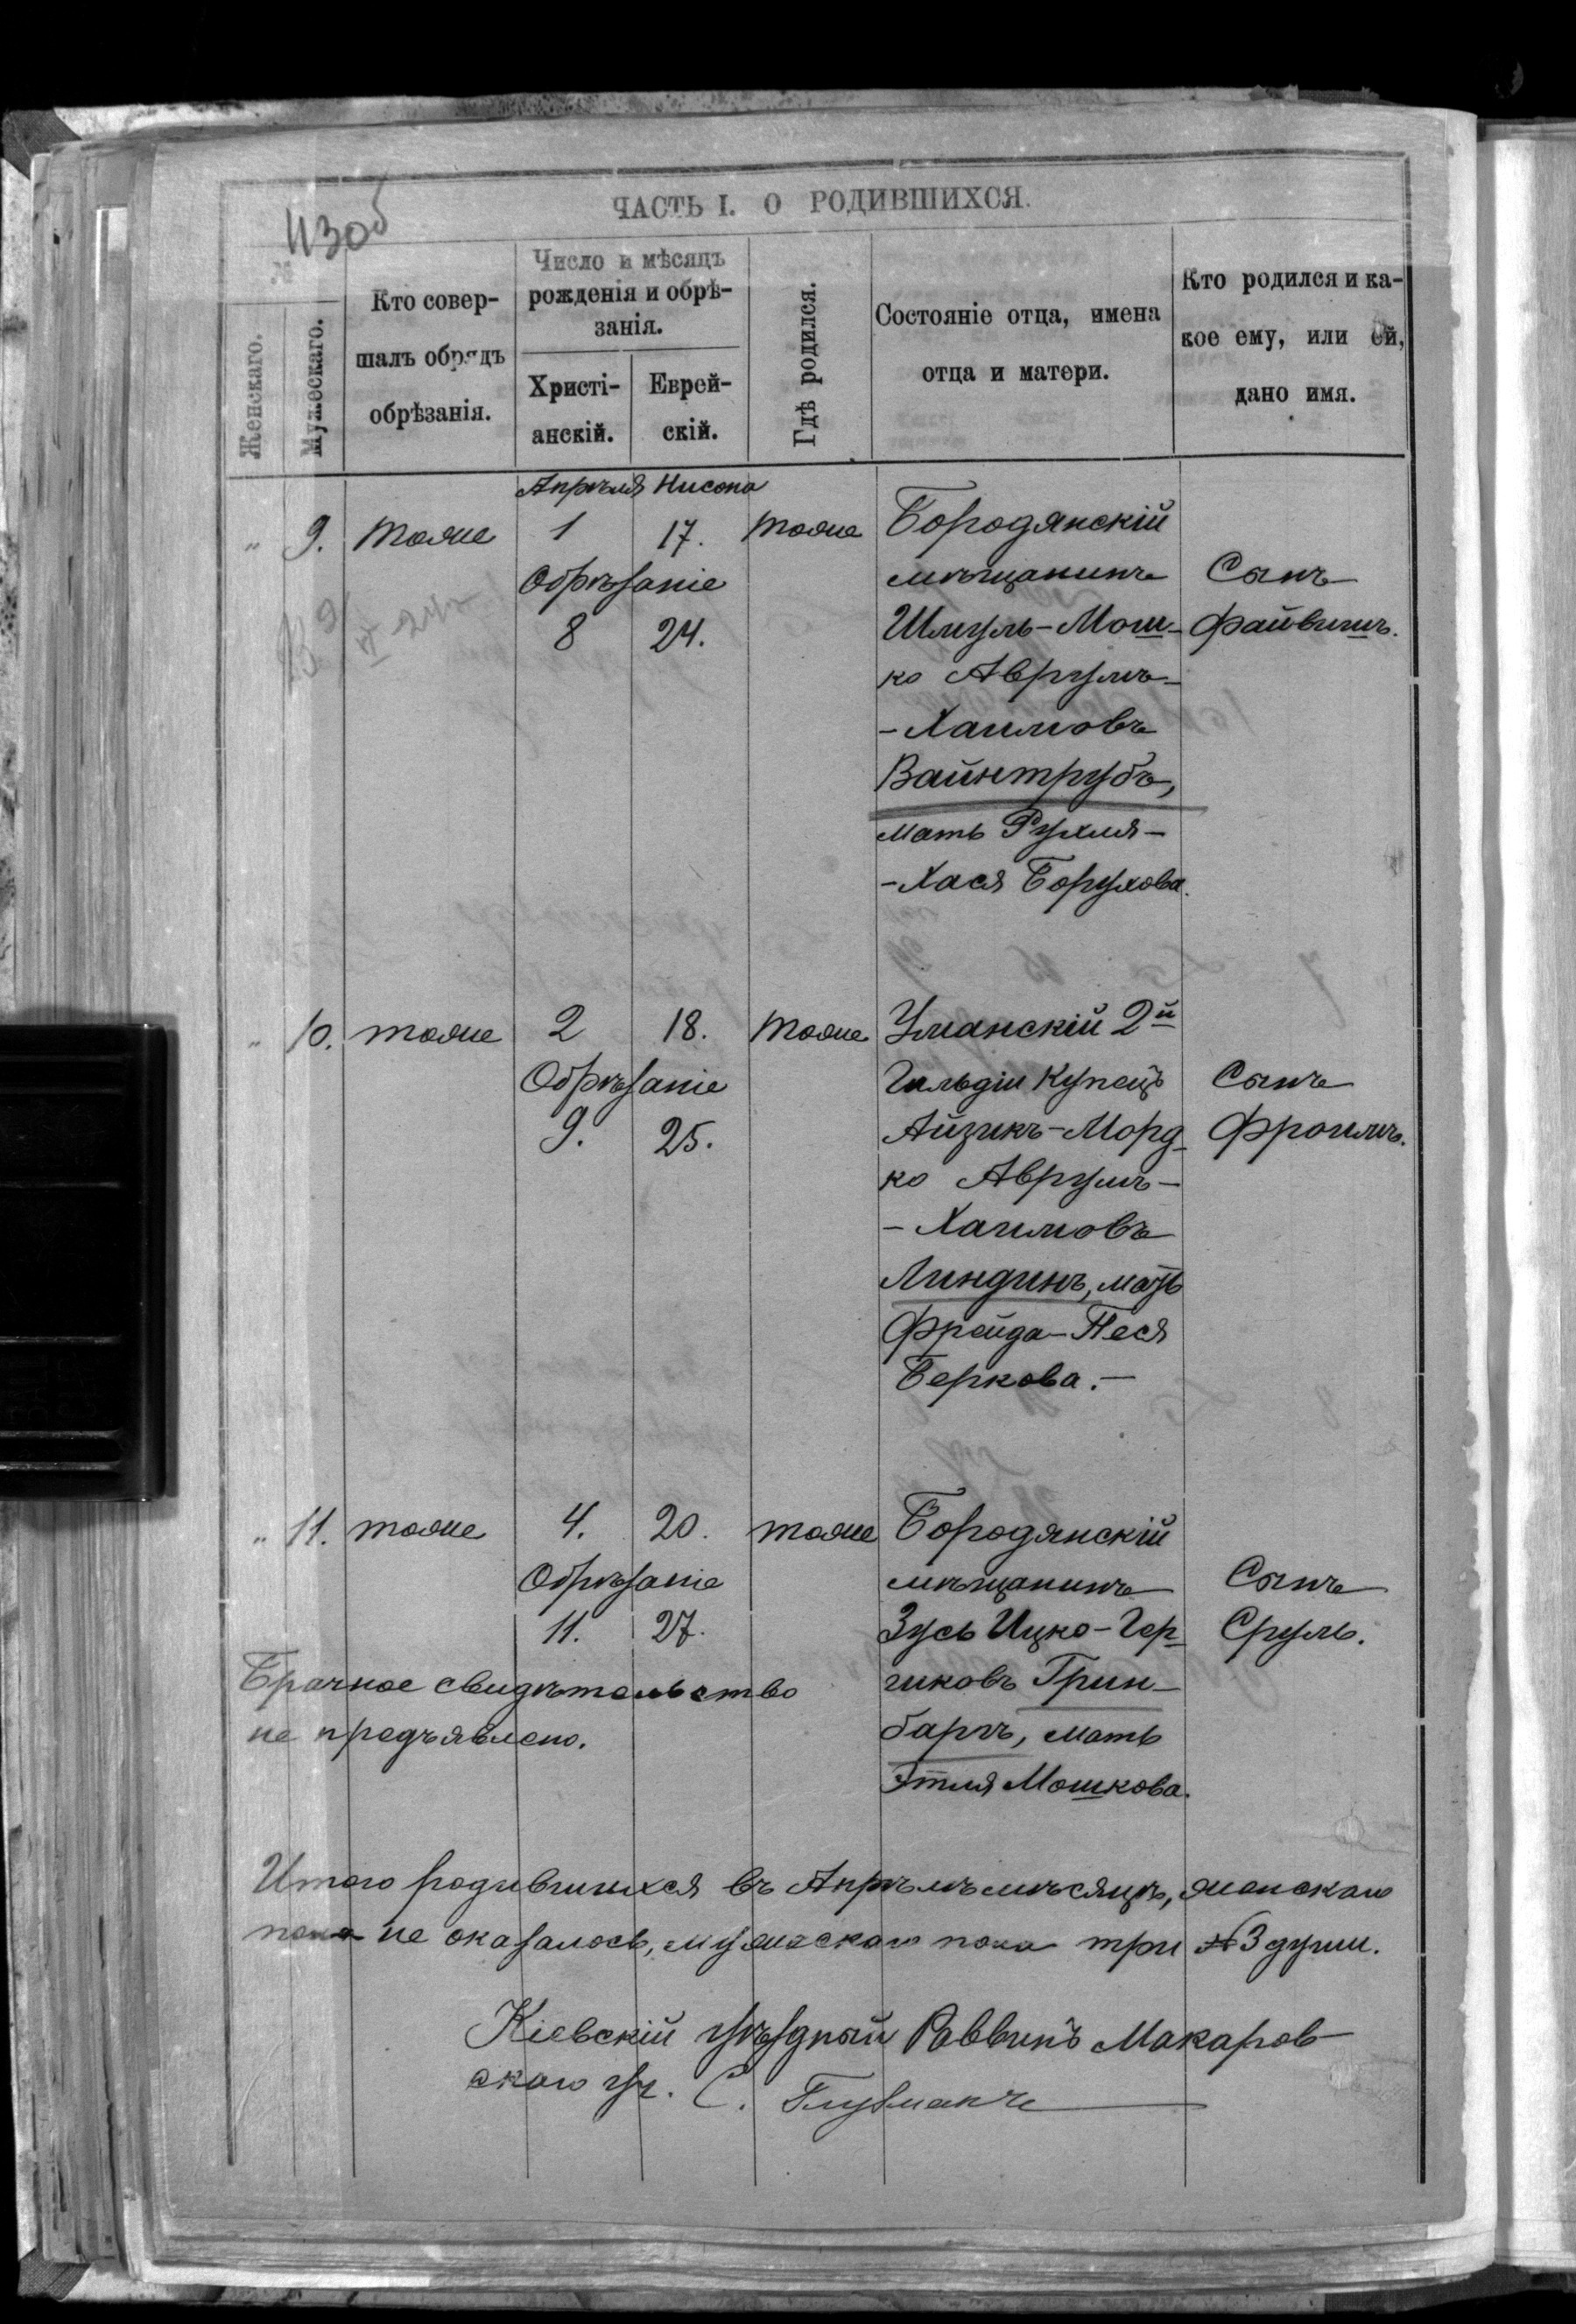 430об
ЧАСТЬ I. О РОДИВШИХСЯ.
№
Женскаго.
Мужескаго.
Кто совер-
шалъ обрядъ
обрѣзанія.
Число и мѣсяцъ
рожденія и обрѣ-
занія.
Христі-
анскій.
Еврей-
скій.
Гдѣ родился.
Состояніе отца, имена
отца и матери.
Кто родился и ка-
кое ему, или ей,
дано имя.
Апрѣля Нисона
" 9. тоже 1 17. тоже Бородянскій
Обрѣзаніе мѣщанинъ Сынъ
8 24. Шмуль-Мош- Файвишъ.
ко Аврумъ-
-Хаимовъ
Вайнтрубъ,
мать Рухля-
-Хася Борухова.
" 10. тоже 2 18. тоже Уманскій 2й
Обрѣзаніе Гильдіи Купецъ Сынъ
9. 25. Айзикъ-Морд- Фроимъ.
ко Аврумъ-
-Хаимовъ
Линдинъ, мать
Фрейда-Песя
Беркова.-
" 11. тоже 4. 20. тоже Бородянскій
Обрѣзаніе мѣщанинъ Сынъ
11. 27. Зусь Ицко-Гер- Сруль.
Брачное свидѣтельство
не предъявлено.
шковъ Грин-
баргъ, мать
Этля Мошкова.
Итого родившихся въ Апрѣлѣ мѣсяцѣ, женскаго
пола не оказалось, мужескаго пола три 3 души.
Кіевскій уѣздный Раввинъ Макаров-
скаго уч. С. Глузманъ